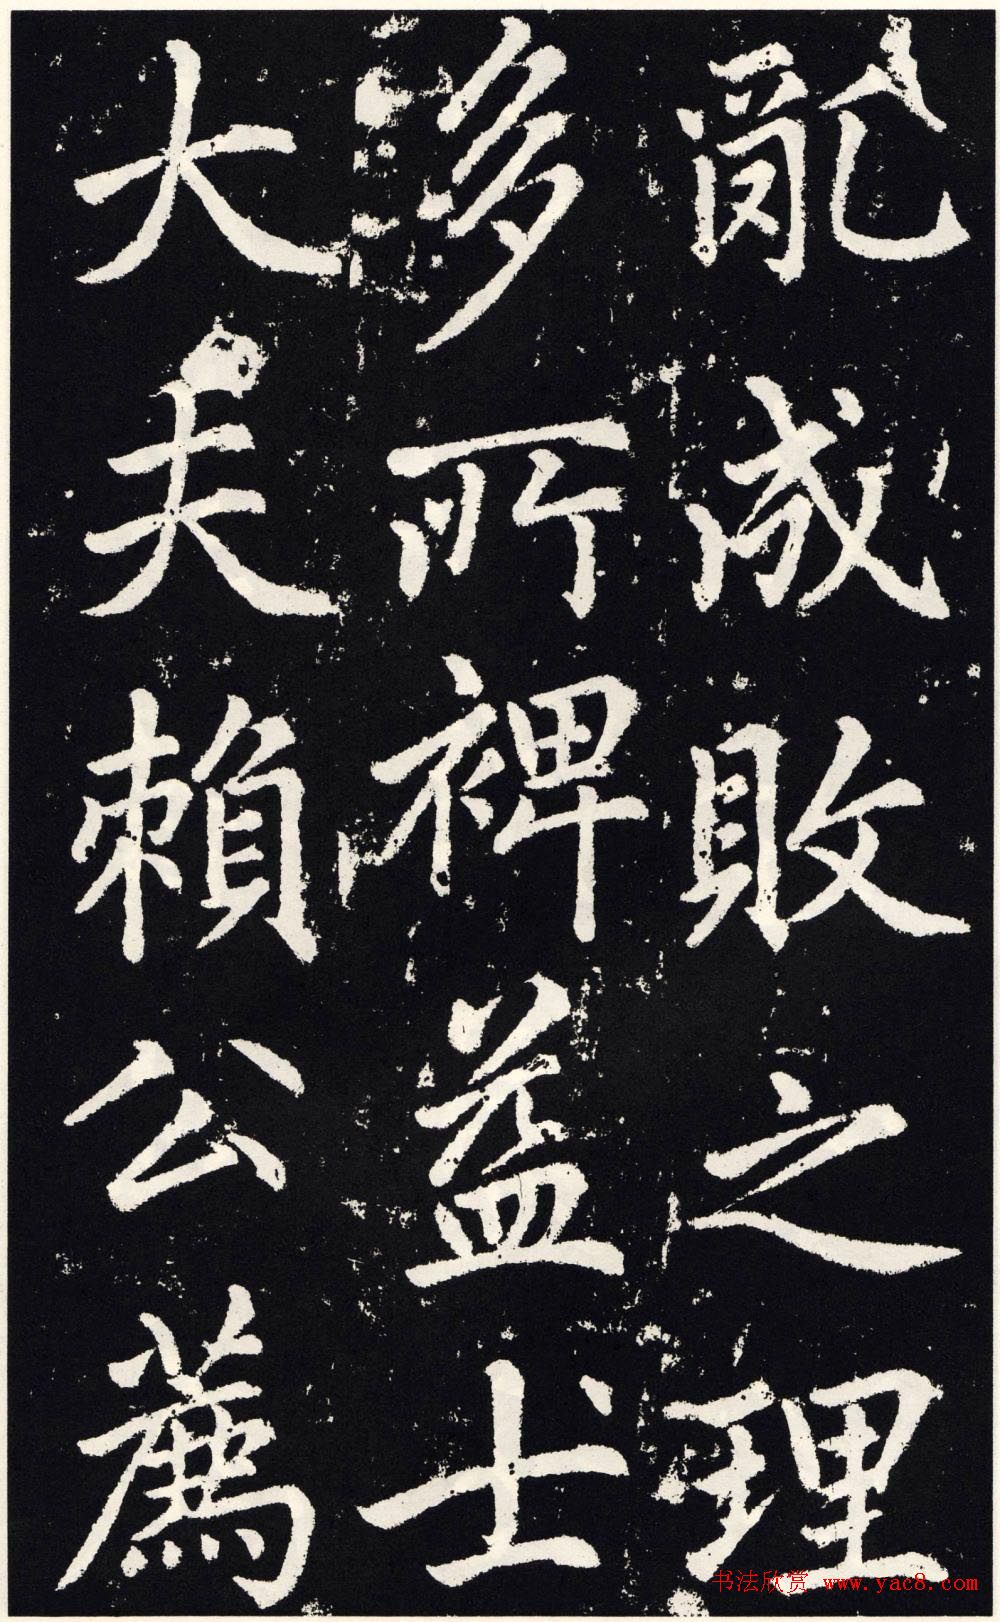 亂成敗之理
多所裨益士
大夫賴公薦
书法欣赏 www.yac8.com